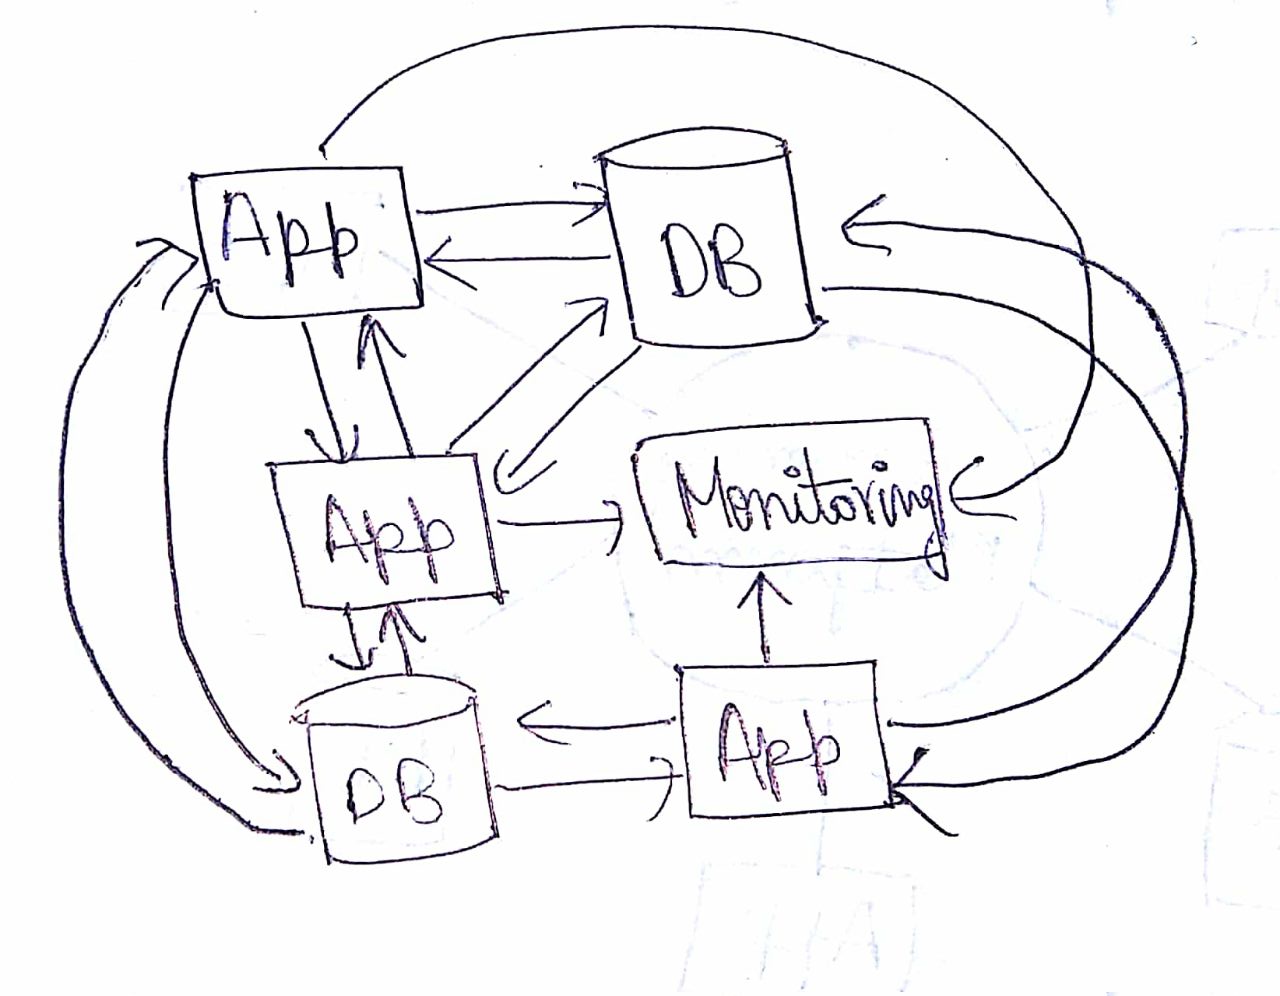 App
DB
App
Monitoring
DB
App